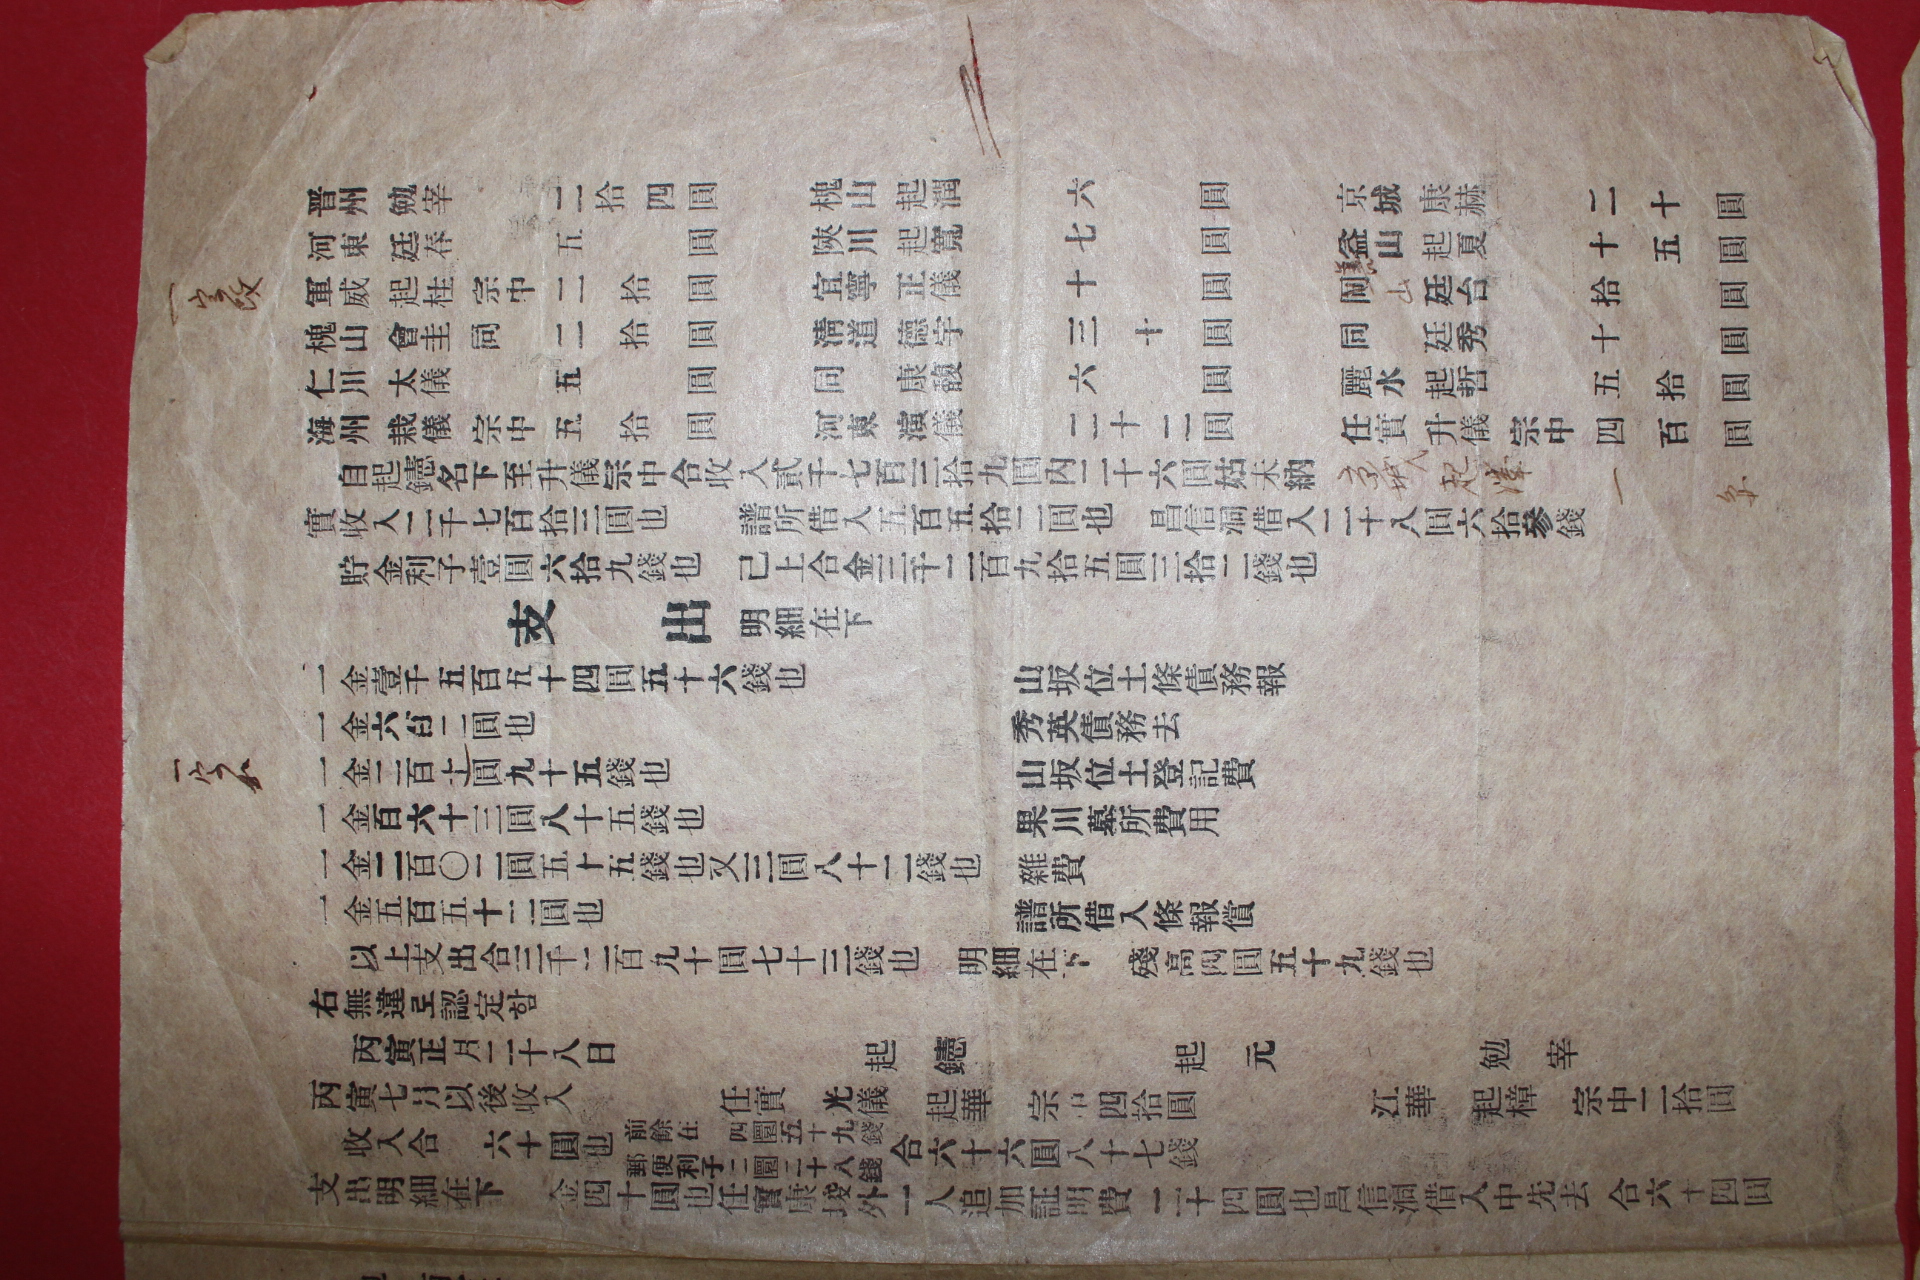 一字改
一字加
晋州 勉宰 二拾四圓 槐山 起潤 六圓 京城 康赫 二十圓
河東 廷春 五圓 陜川 起寬 七圓 益山 起夏 十五圓
軍威 起柱 宗中 二拾圓 宜寧 正儀 十圓 山 廷台 拾圓
槐山 會圭 同 二拾圓 淸道 德宇 三十圓 同 廷秀 十圓
仁川 太儀 五圓 同 康馥 六圓 麗水 起哲 五拾圓
海州 栽儀 宗中 五拾圓 河東 演儀 二十二圓 任實 升儀 宗中 四百圓
自起鏸名下至升儀宗中合收入貳千七百三拾九圓內二十六圓姑未納 京城 起 一
實收入二千七百拾三圓也 譜所借入五百五拾二圓也 昌信洞借入二十八圓六拾參錢
貯金利子壹圓六拾九錢也 已上合金三千二百九拾五圓三拾二錢也
支出 明細在下
一金壹千五百五十四圓五十六錢也 山坂位土條債務報
一金六百二圓也 秀英債務去
一金二百七圓九十五錢也 山坂位土登記費
一金百六十三圓八十五錢也 果川墓所費用
一金二百〇二圓五十五錢也又三圓八十二錢也 雜費
一金五百五十二圓也 譜所借入條報償
以上支出合三千二百九十圓七十三錢也 明細在下 殘高四圓五十九錢也
右無違로認定함
丙寅正月二十八日 起鏸 起元 勉宰
丙寅七月以後收入 任實 光儀 起華 宗中四拾圓 江華 起樟 宗中二拾圓
收入合 六十圓也 前餘在 四圜五十九錢 郵便利子二圜二十八錢 合六十六圓八十七錢
支出明細在下 金四十圓也任實康埈外一人追加証明費 二十四圓也昌信洞借入中先去 合六十四圓